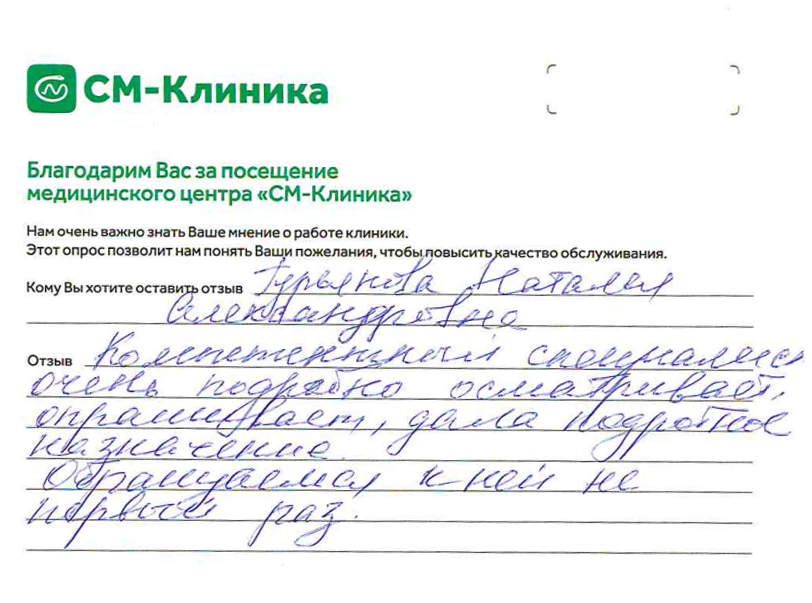 СМ-Клиника
Благодарим Вас за посещение
медицинского центра «СМ-Клиника»
Нам очень важно знать Ваше мнение о работе клиники.
Этот опрос позволит нам понять Ваши пожелания, чтобы повысить качество обслуживания.
Кому Вы хотите оставить отзыв Гурьянова Наталья
Александровна
Отзыв Компетентный специалист
очень подробно осматривает,
опрашивает, дала подробное
назначение.
Обращаемся к ней не
первый раз.